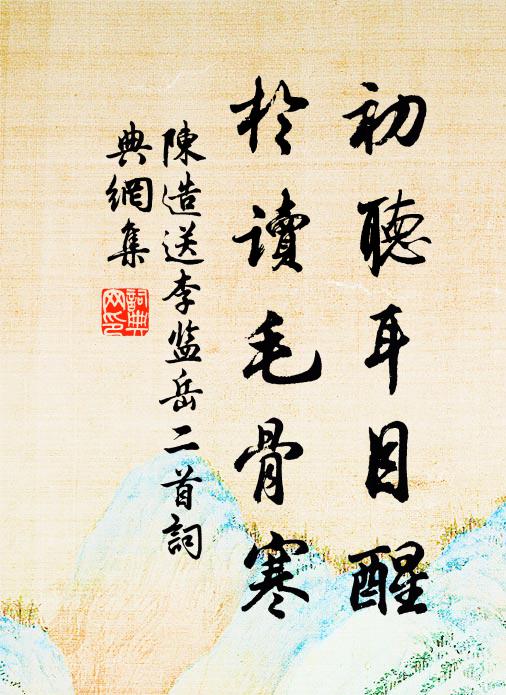 初聽耳目醒
於讀毛骨寒
陳造送李监岳二首詞
典網集
詞典
网印